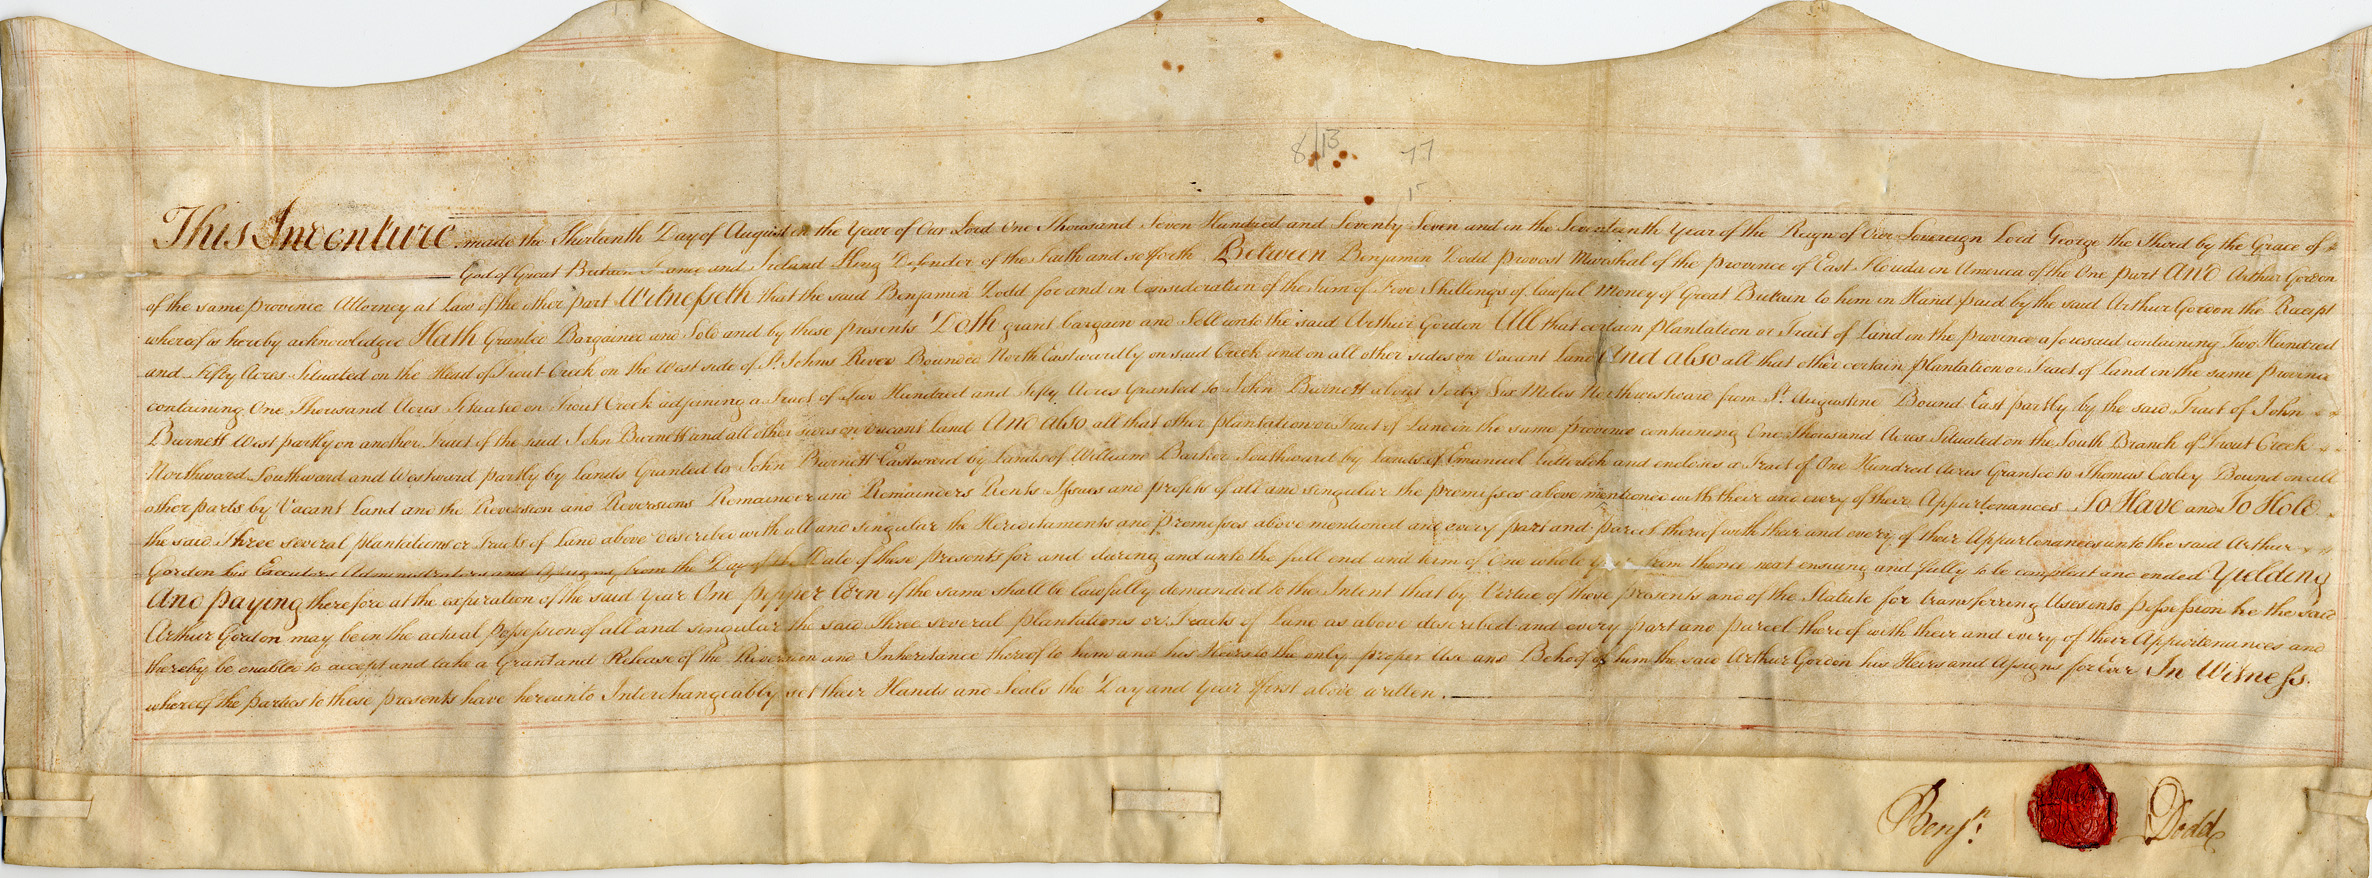 8/13 77
15
This Indenture made the Thirteenth Day of August in the Year of Our Lord One Thousand Seven Hundred and Seventy Seven and in the Seventeenth Year of the Reign of Our Sovereign Lord George the Third by the Grace of
God of Great Britain France and Ireland King Defender of the Faith and so forth Between Benjamin Dodd Provost Marshal of the Province of East Florida in America of the One part And Arthur Gordon
of the same province Attorney at Law of the other part Witnesseth that the said Benjamin Dodd for and in Consideration of the Sum of Five Shillings of lawful Money of Great Britain to him in Hand paid by the said Arthur Gordon the Receipt
whereof is hereby acknowledged Hath Granted Bargained and Sold and by these presents Doth grant bargain and Sell unto the said Arthur Gordon All that certain plantation or Tract of Land in the Province aforesaid containing Two Hundred
and Fifty Acres Situated on the Head of Trout Creek on the West side of St. Johns River Bounded North Eastwardly on said Creek and on all other sides on Vacant Land And also all that other certain plantation or Tract of Land in the same Province
containing One Thousand Acres Situated on Trout Creek adjoining a Tract of Two Hundred and Fifty Acres Granted to John Burnett about Forty Six Miles Northwestward from St. Augustine Bound East partly by the said Tract of John
Burnett West partly on another Tract of the said John Burnett and all other sides on vacant land And also all that other plantation or Tract of Land in the same province containing One Thousand Acres Situated on the South Branch of Trout Creek
Northward Southward and Westward partly by Lands Granted to John Burnett Eastward by Lands of William Barker Southward by Lands of Emanuel and encloses a Tract of One Hundred Acres Granted to Thomas Cooley Bound on all
other parts by Vacant Land and the Reversion and Reversions Remainder and Remainders Rents Issues and profits of all and singular the premisses above mentioned with their and every of their Appurtenances To Have and To Hold
the said Three several plantations or tracts of Land above described with all and singular the Hereditaments and premisses above mentioned and every part and parcel thereof with their and every of their Appurtenances unto the said Arthur
Gordon his Executors Administrators and Assigns from the Day of the Date of these presents for and during and unto the full end and term of One whole from thence next ensuing and fully to be compleat and ended Yielding
And paying therefore at the expiration of the said Year One pepper Corn if the same shall be lawfully demanded To the Intent that by Virtue of these presents and of the Statute for transferring Uses into possession he the said
Arthur Gordon may be in the actual possession of all and singular the said Three several plantations or Tracts of Land as above described and every part and parcel thereof with their and every of their Appurtenances and
thereby be enabled to accept and take a Grant and Release of the Reversion and Inheritance thereof to him and his Heirs to the only proper Use and Behoof of him the said Arthur Gordon his Heirs and Assigns for Ever In Witness
whereof the parties to these presents have hereunto Interchangeably set their Hands and Seals the Day and Year first above written.
Benjn. Dodd